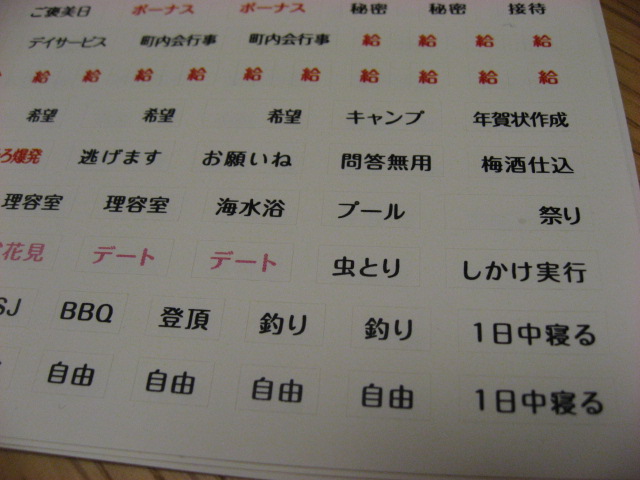 ご褒美日 ボーナス ボーナス 秘密 秘密 接待
デイサービス 町内会行事 町内会行事 給 給 給 給
給 給 給 給 給 給 給 給 給 給
希望 希望 希望 キャンプ 年賀状作成
ろ爆発 逃げます お願いね 問答無用 梅酒仕込
理容室 理容室 海水浴 プール 祭り
花見 デート デート 虫とり しかけ実行
SJ BBQ 登頂 釣り 釣り 1日中寝る
自由 自由 自由 自由 1日中寝る